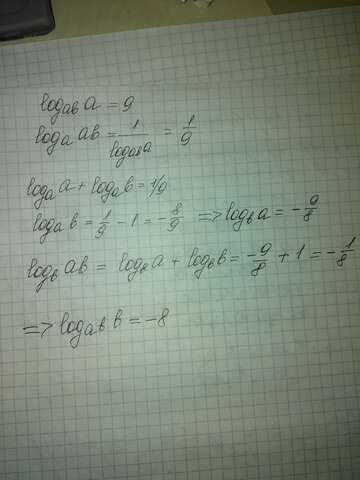 log_{ab} a = 9
log_a ab = \frac{1}{log_{ab} a} = \frac{1}{9}
log_a a + log_a b = 1/9
log_a b = \frac{1}{9} - 1 = -\frac{8}{9} => log_b a = -\frac{9}{8}
log_b ab = log_b a + log_b b = -\frac{9}{8} + 1 = -\frac{1}{8}
=> log_{ab} b = -8